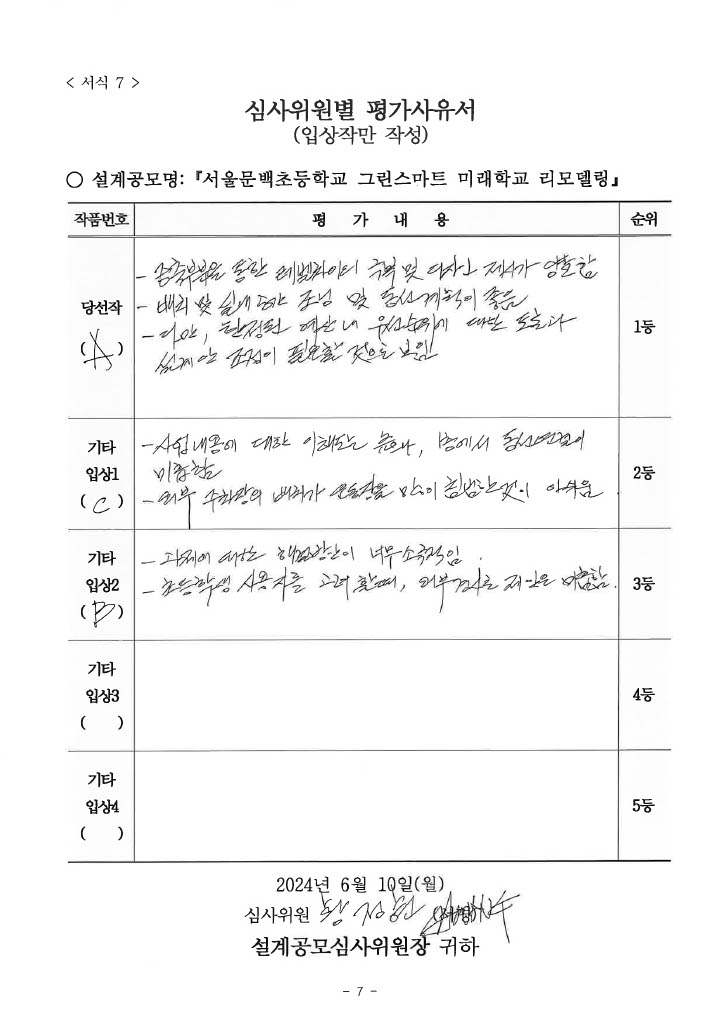 < 서식 7 >
심사위원별 평가사유서
(입상작만 작성)
○ 설계공모명:『서울문백초등학교 그린스마트 미래학교 리모델링』
작품번호 평 가 내 용 순위
당선작
( A )
- 통한 및 디자인 제시가 양호함
- 배치 및 실내 조닝 및 동선계획이 좋음
- 다만, 한정된 예산 내 우선순위에 대한
설계안 조정이 필요할 것으로 보임
1등
기타
입상1
( C )
- 사업내용에 대한 이해도는 높으나, 동선연결이
미흡함
- 외부 주차장의 배치가 운동장을 많이 침범한것이 아쉬움.
2등
기타
입상2
( B )
- 과제에 대한 해결방안이 너무 소극적임.
- 초등학생 사용자를 고려할때, 외부경사로 제안은 미흡함.
3등
기타
입상3
( )
4등
기타
입상4
( )
5등
2024년 6월 10일(월)
심사위원
설계공모심사위원장 귀하
- 7 -